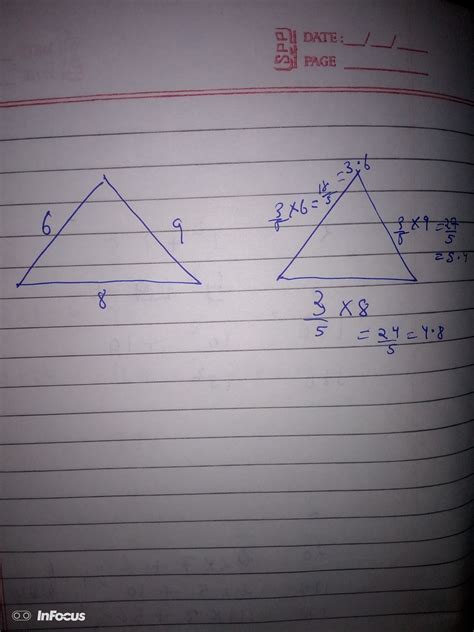 SPP
DATE: __/__/__
PAGE
6
9
8
3/5 ×6 = 18/5 = 3.6
3/5 ×9 = 27/5
= 5.4
3/5 ×8
= 24/5 = 4.8
InFocus